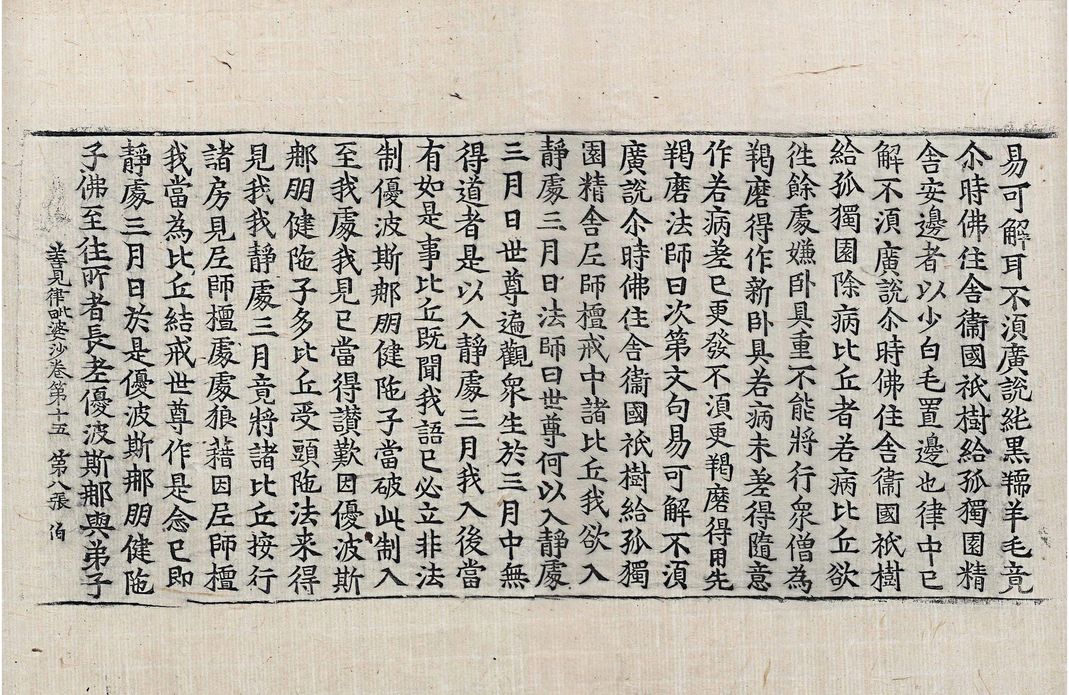 易可解耳不湏廣說純黒羺羊毛竟
尒時佛住舍衞國祇樹給孤獨園精
舎安邊者以少白毛置邊也律中已
解不湏廣說尒時佛住舎衞國祇樹
給孤獨園除病比丘者若病比丘欲
徃餘處嫌卧具重不能將行衆僧為
羯磨得作新卧具若病未差得隨意
作若病差已更發不湏更羯磨得用先
羯磨法師曰次第文句易可解不湏
廣說尒時佛住舎衞國祇樹給孤獨
園精舎𡰱師檀戒中諸比丘我欲入
静處三月日法師曰世尊何以入静處
三月日世尊遍觀衆生於三月中無
得道者是以入静處三月我入後當
有如是事比丘既聞我語已必立非法
制優波斯𨚗朋健陁子當破此制入
至我處我見已當得讃歎因優波斯
𨚗朋健陁子多比丘受頭陁法来得
見我我静處三月竟將諸比丘按行
諸房見𡰱師檀處處狼藉因𡰱師檀
我當為比丘結戒世尊作是念已即
静處三月日於是優波斯𨚗朋健陁
子佛至往所者長老優波斯𨚗與弟子
善見律毗婆沙卷第十五　第八張　伯